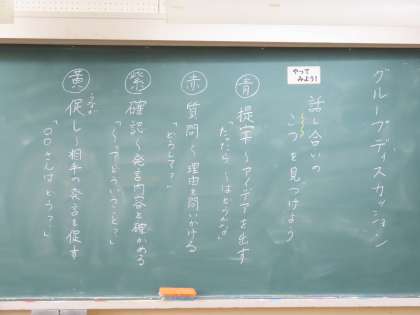 グループディスカッション
やって
みよう!
話し合いの
こつを見つけよう
青 提案〜アイデアを出す
赤 質問〜理由を問いかける
「どうして?」
紫 確認〜発言内容を確かめる
「〜ってどういうこと?」
黄 促し〜相手の発言を促す
うなが
「○○さんはどう?」